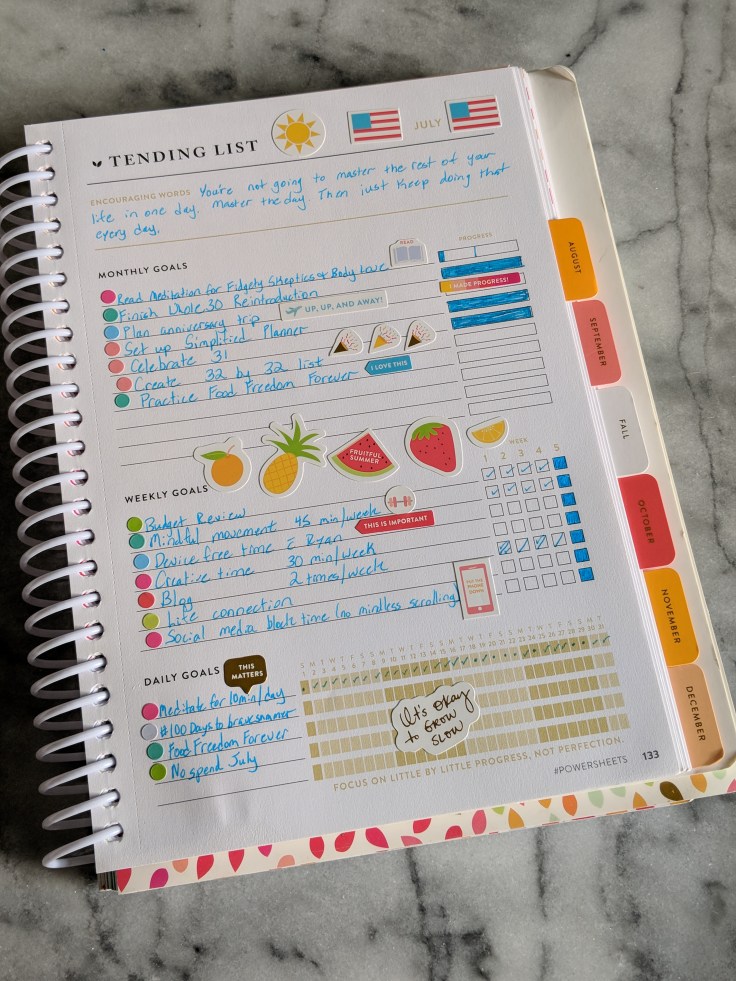 TENDING LIST
JULY
ENCOURAGING WORDS You're not going to master the rest of your
life in one day. Master the day. Then just keep doing that
every day.
MONTHLY GOALS
READ
PROGRESS
Read Meditation for Fidgety Skeptics & Body Love
Finish Whole 30 Reintroduction
I MADE PROGRESS!
Plan anniversary trip
UP, UP, AND AWAY!
Set up Simplified Planner
Celebrate 31
Create 32 by 32 list
I LOVE THIS
Practice Food Freedom Forever
FRUITFUL
SUMMER
WEEK
1 2 3 4 5
WEEKLY GOALS
Budget Review
Mindful movement 45 min/week
THIS IS IMPORTANT
Device free time Ryan
Creative time 30 min/week
Blog 2 times/week
Life connection
Social media block time (no mindless scrolling)
PUT THE
PHONE
DOWN!
DAILY GOALS
THIS
MATTERS
S M T W T F S S M T W T F S S M T W T F S S M T W T F S S M T
1 2 3 4 5 6 7 8 9 10 11 12 13 14 15 16 17 18 19 20 21 22 23 24 25 26 27 28 29 30 31
Meditate for 10 min/day
#100 Days to brave summer
Food Freedom Forever
No spend July
It's okay
to GROW
SLOW
FOCUS ON LITTLE BY LITTLE PROGRESS, NOT PERFECTION.
#POWERSHEETS 133
AUGUST
SEPTEMBER
FALL
OCTOBER
NOVEMBER
DECEMBER